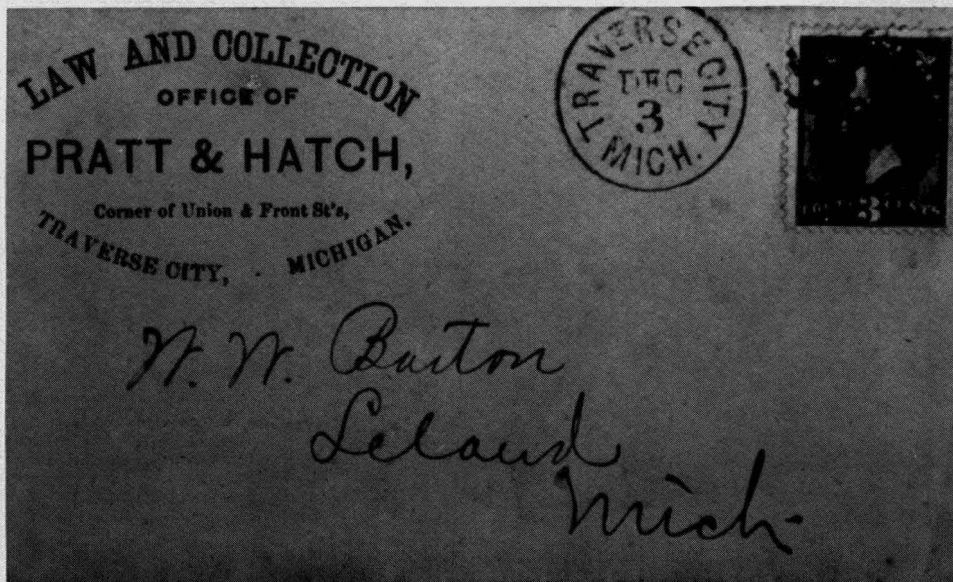 LAW AND COLLECTION
OFFICE OF
PRATT & HATCH,
Corner of Union & Front St's,
TRAVERSE CITY, - MICHIGAN.
TRAVERSE CITY
DEC
3
MICH.
3 CENTS
W. W. Barton
Leland
Mich-